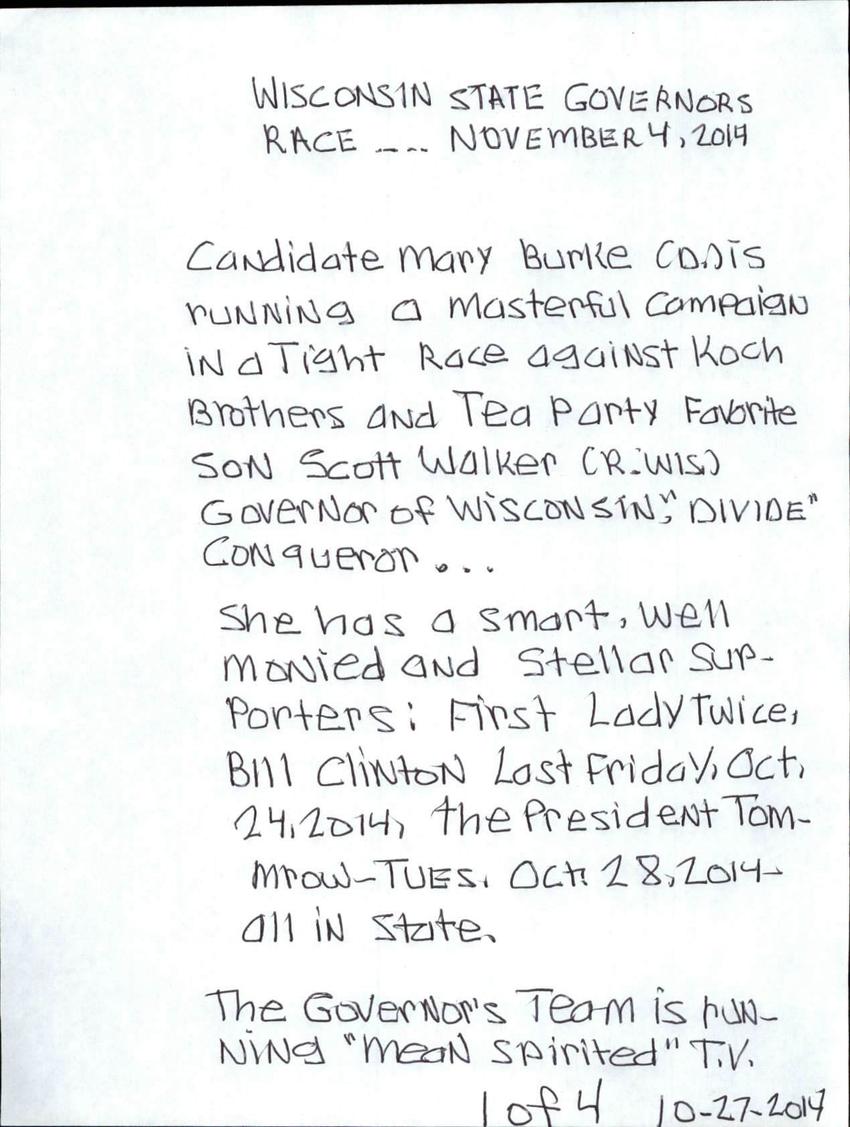 WISCONSIN STATE GOVERNORS
RACE ---- NOVEMBER 4, 2014
Candidate Mary Burke (D.) is
running a masterful campaign
in a Tight Race against Koch
Brothers and Tea Party Favorite
Son Scott Walker (R.WIS)
Governor of WISCONSIN, "DIVIDE"
Conqueror...
She has a smart, well
monied and stellar sup-
porters: First Lady Twice,
Bill Clinton Last Friday, Oct.
24, 2014, the President Tom-
mrow-TUES. Oct. 28, 2014-
all in state.
The Governor's Team is run-
ning "mean spirited" T.V.
1 of 4 10-27-2014